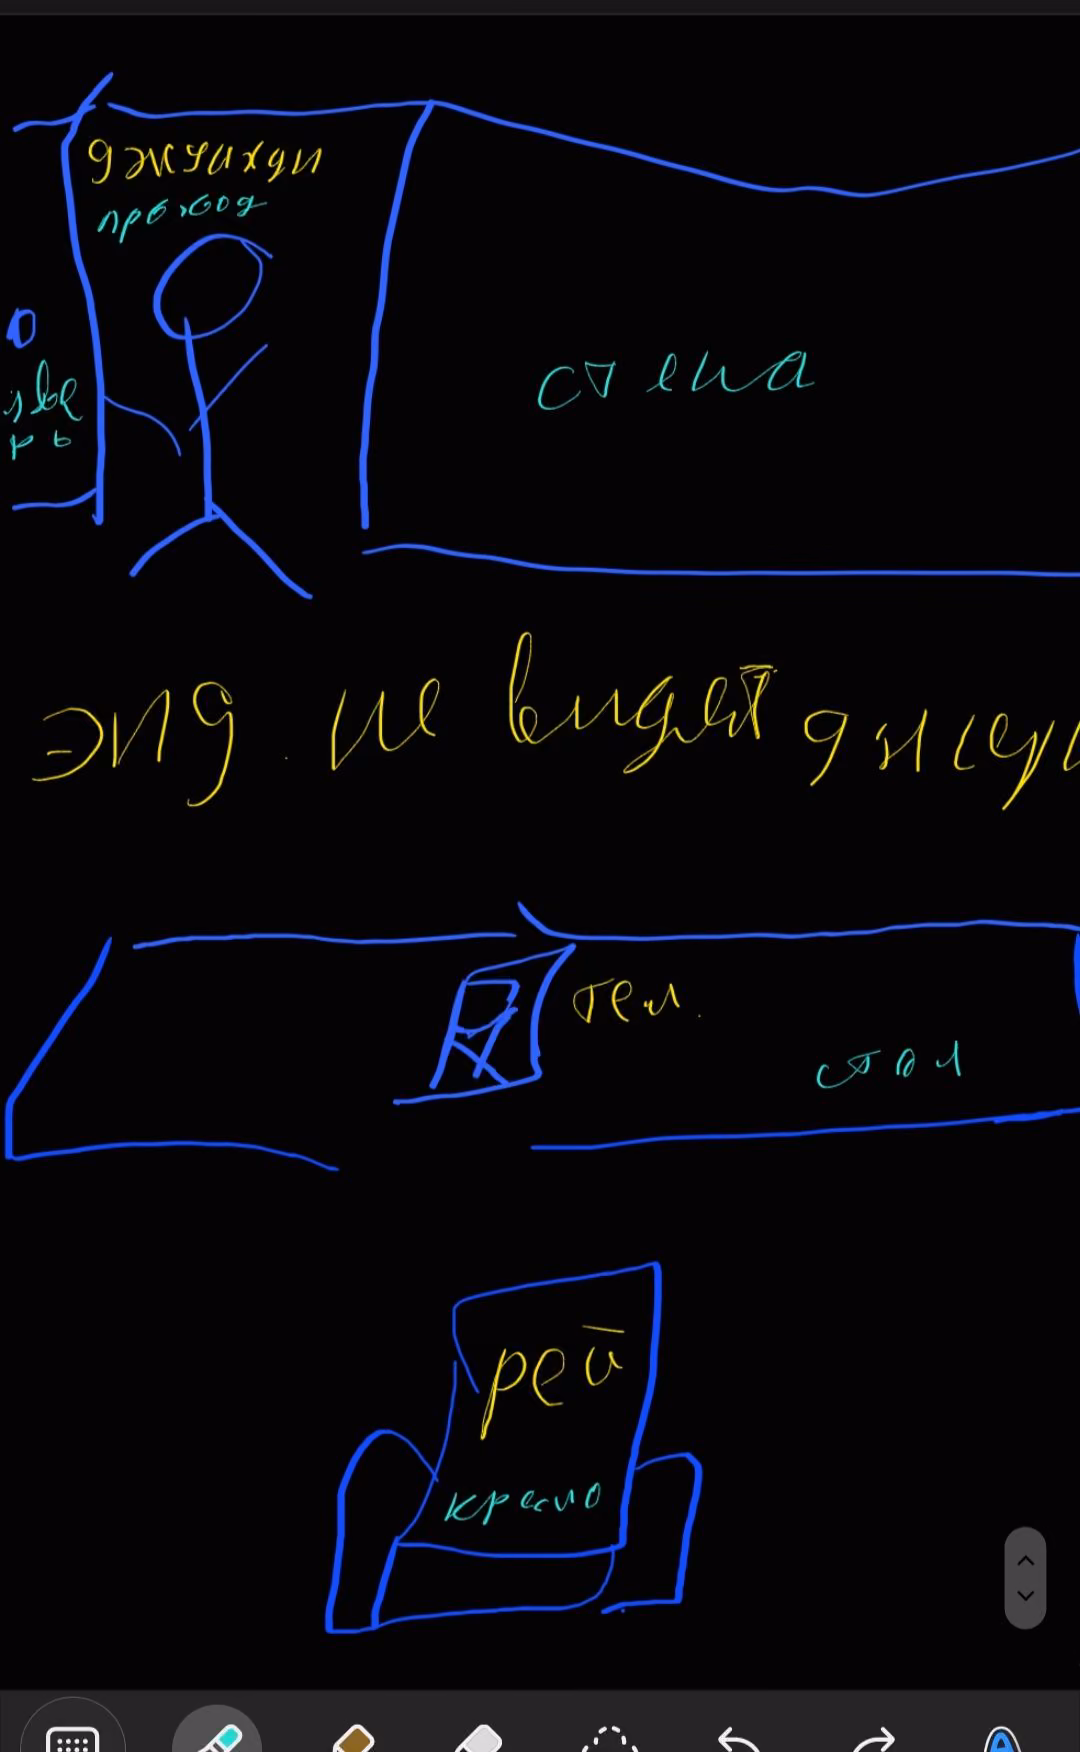 джунхди
проход
две
рь
стена
энд. не видет джеу
тел.
стол
рей
кресло